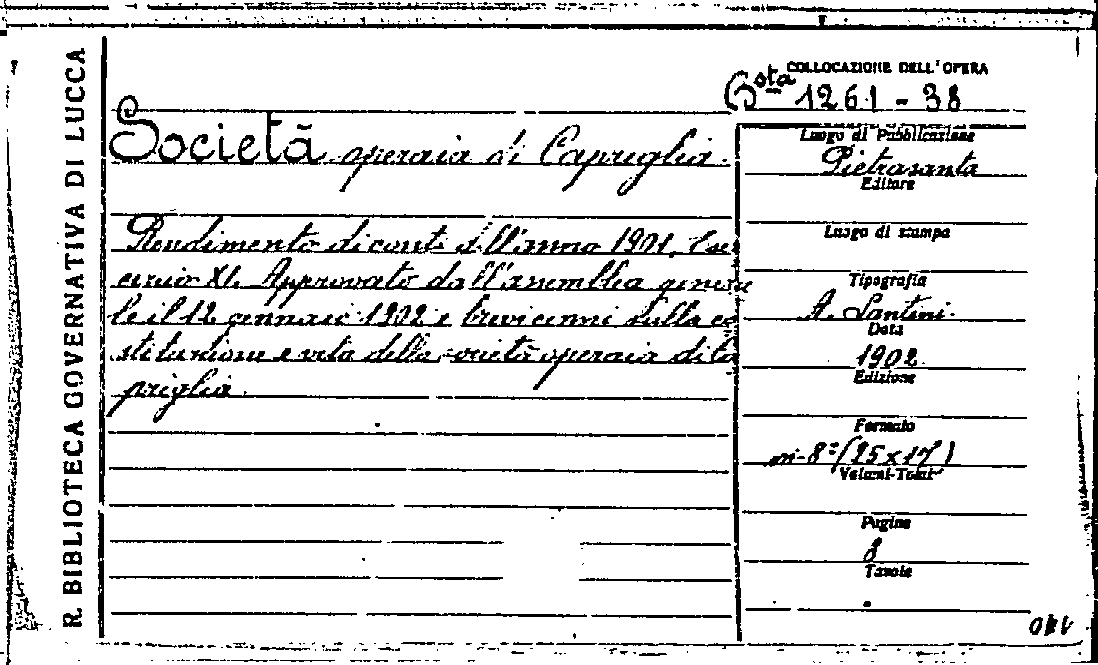 R. BIBLIOTECA GOVERNATIVA DI LUCCA
COLLOCAZIONE DELL'OPERA
Bsta 1261 - 38
Società operaia di Capriglia.
Rendimento di conti dell'anno 1901. Eser
cizio XI. Approvato dall'assemblea genera
le il 12 gennaio 1902 e brevi cenni sulla co
stituzione e vita della società operaia di Ca
priglia.
Luogo di Pubblicazione
Pietrasanta
Editore
Luogo di stampa
Tipografia
A. Santini.
Data
1902
Edizione
Formato
in-8° (25 x 17)
Volumi-Tomi
Pagine
8
Tavole